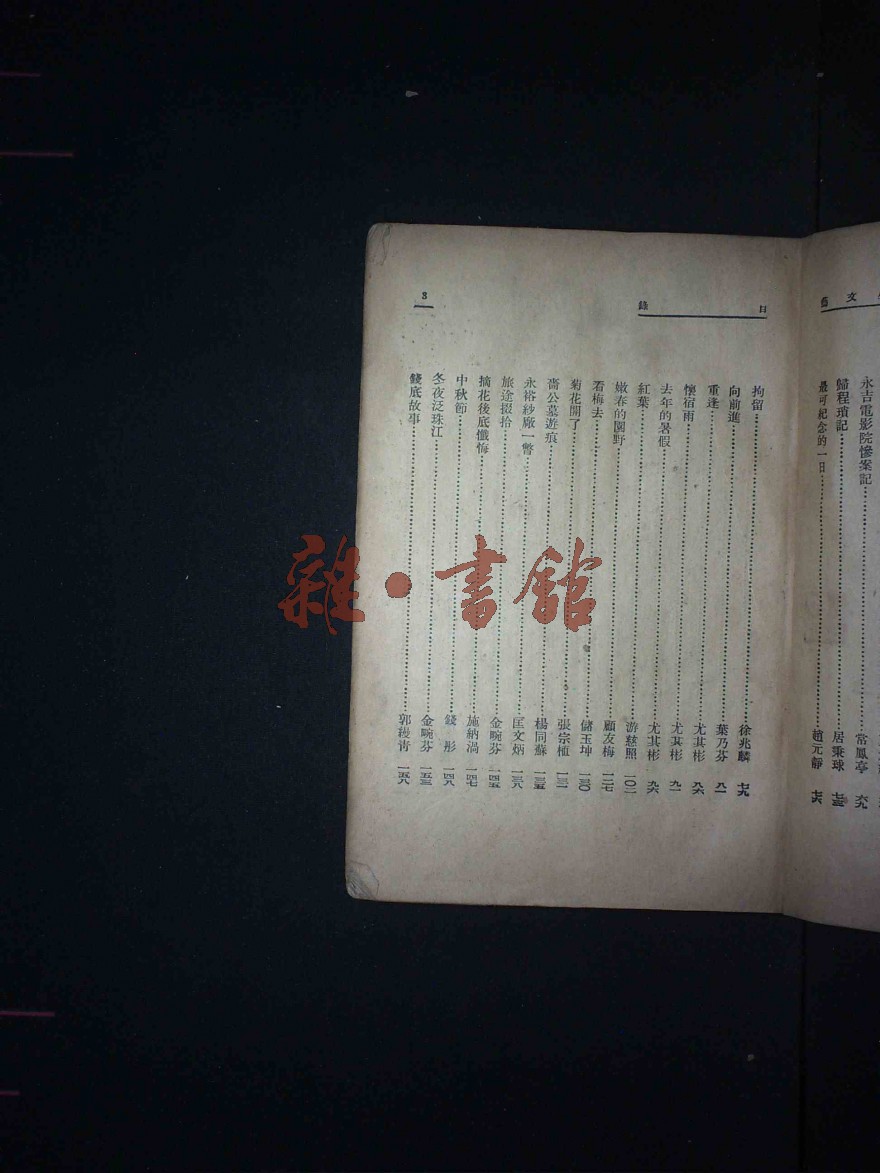 文藝
永吉電影院慘案記 常鳳亭 六九
歸程瑣記 居秉球 七三
最可紀念的一日 趙元靜 七六
目錄
3
拘留 徐兆麟 七九
向前進 葉乃芬 八一
重逢 尤其彬 八六
懷宿雨 尤其彬 九一
去年的暑假 尤其彬 九六
紅葉 游慈照 一〇二
嫩春的園野 顧友梅 一二七
看梅去 儲玉坤 一三〇
菊花開了 張宗植 一三一
嗇公墓遊痕 楊同蘇 一三五
永裕紗廠一瞥 匡文炳 一三八
旅途掇拾 金畹芬 一四五
摘花後底懺悔 施納渦 一四七
中秋節 錢彤 一四八
冬夜泛珠江 金畹芬 一五三
錢底故事 郭縵青 一五八
雜·書館